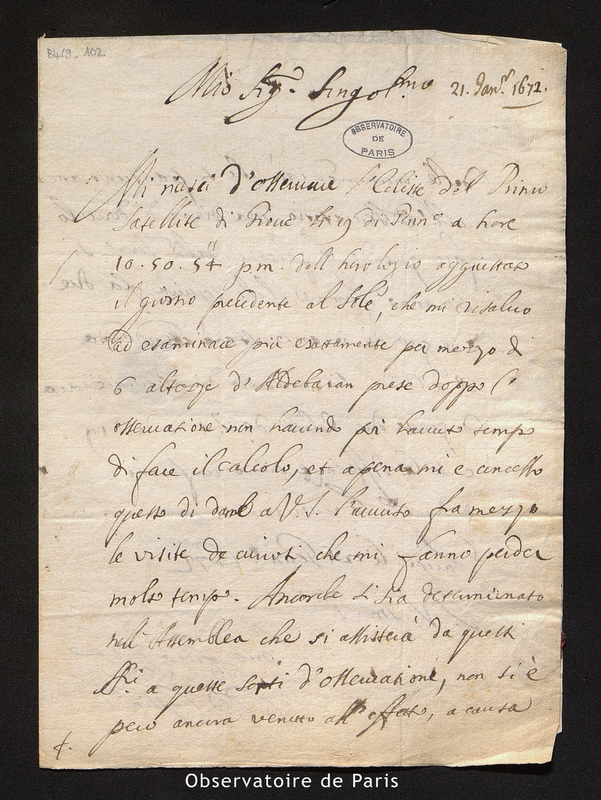 B4.9-102
Mio Sig.r Singol.mo 21. Janr. 1672.
OBSERVATOIRE
DE
PARIS
Mi riuscì d'osservare l'Eclisse del Primo
Satellite di Giove li 19 di Genn.o a hore
10. 50. 54 p.m. dell' horologio aggiustato
il giorno precedente al Sole, che mi risalvo
ad esaminare più esattamente per mezzo di
6 altezze d'Aldebaran prese doppo l'
osservazione non havendo poi havuto tempo
di fare il calcolo, et apena mi è concesso
questo di darne a V.S. l'avviso fra mezzo
le visite de curiosi che mi fanno perder
molto tempo. Ancorche si sia determinato
nell' Assemblea che si assisterà da questi
SS.ri a queste sorti d'osservazioni, non si è
però ancora venuto all' effetto, a causa
Observatoire de Paris